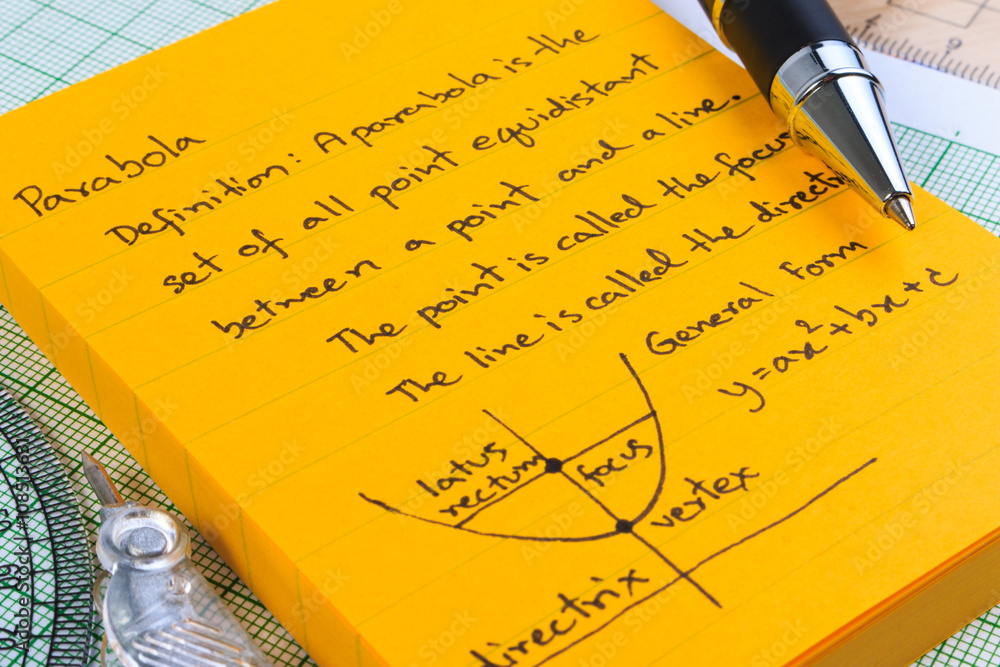 Parabola
Definition: A parabola is the
set of all point equidistant
between a point and a line.
The point is called the focus
The line is called the directri
General Form
y=ax²+bx+c
latus
rectum
focus
vertex
directrix